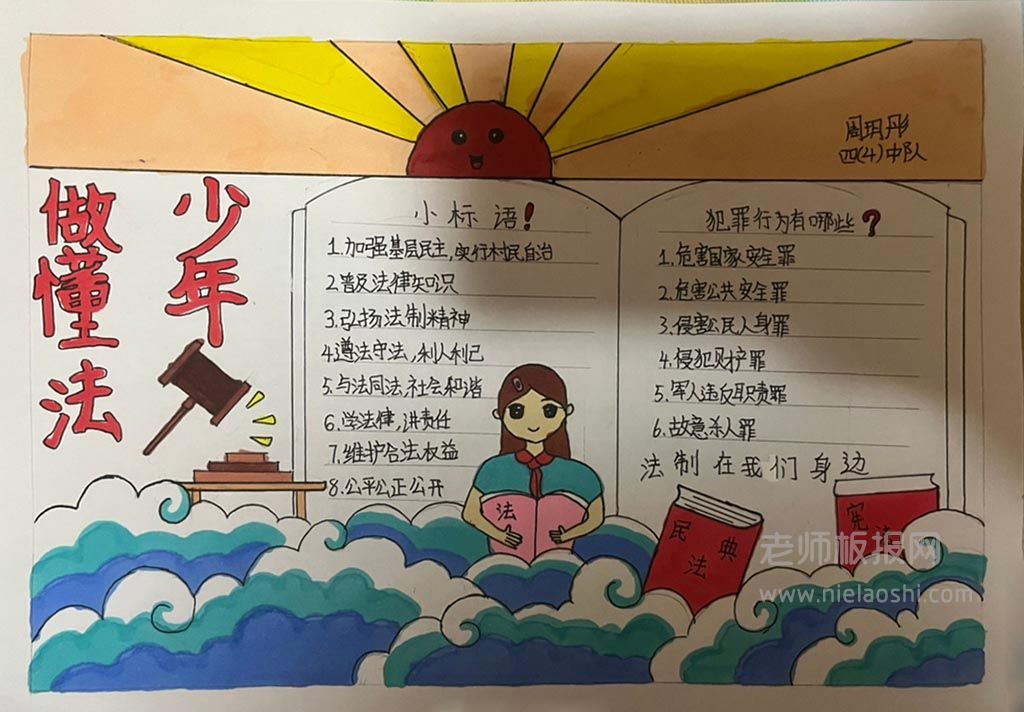 周玥彤
四(4)中队
少年
做懂法
小标语!
1.加强基层民主,实行村民自治
2.普及法律知识
3.弘扬法制精神
4.遵法守法,利人利己
5.与法同法,社会和谐
6.学法律,讲责任
7.维护合法权益
8.公平公正公开
犯罪行为有哪些?
1.危害国家安全罪
2.危害公共安全罪
3.侵害公民人身罪
4.侵犯财护罪
5.军人违反职责罪
6.故意杀人罪
法制在我们身边
法
民法典
宪法
老师板报网
www.nielaoshi.com